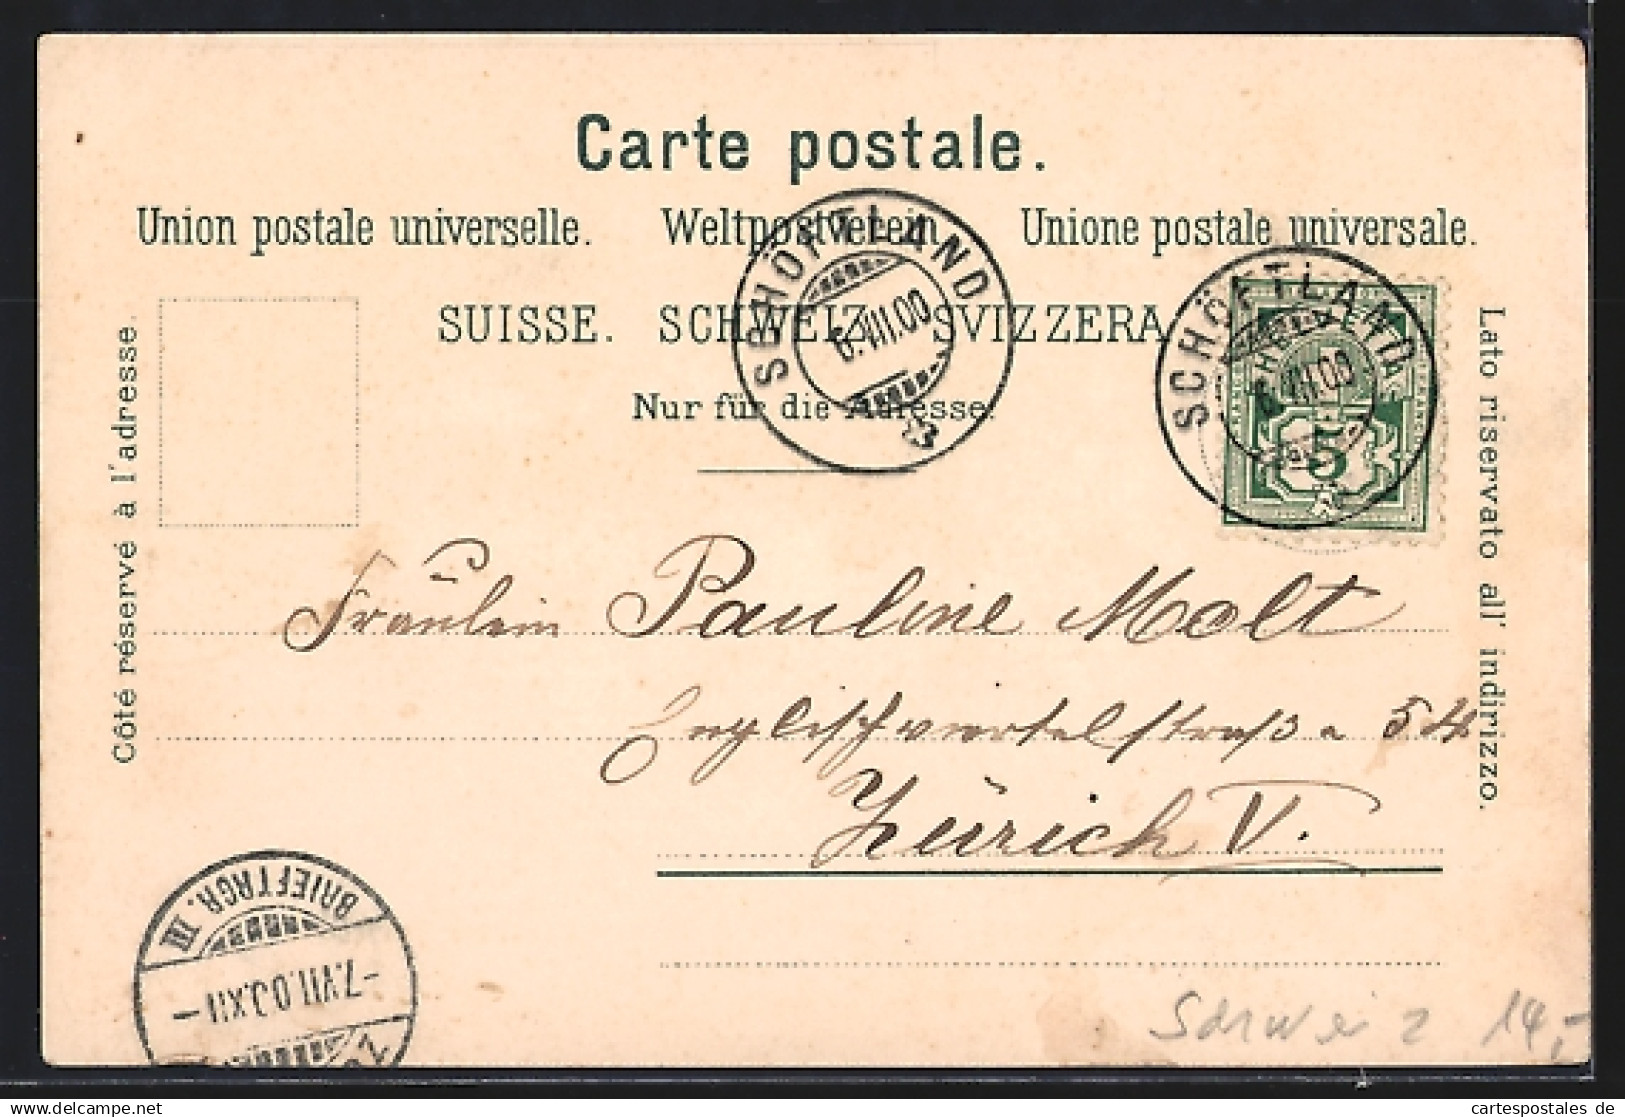 Carte postale.
Union postale universelle. Weltpostverein Unione postale universale.
SUISSE. SCHWEIZ SVIZZERA
Nur für die Adresse.
Côté réservé à l'adresse.
Lato riservato all' indirizzo.
SCHÖFTLAND
6.VII.00
SCHÖFTLAND
6.VII.00
5
Fräulein Pauline Molt
Englischviertelstraße 54
Zürich V.
BRIEFTRGR. III
-7.VII.00.XII-
Schweiz 14,-
cartespostales de